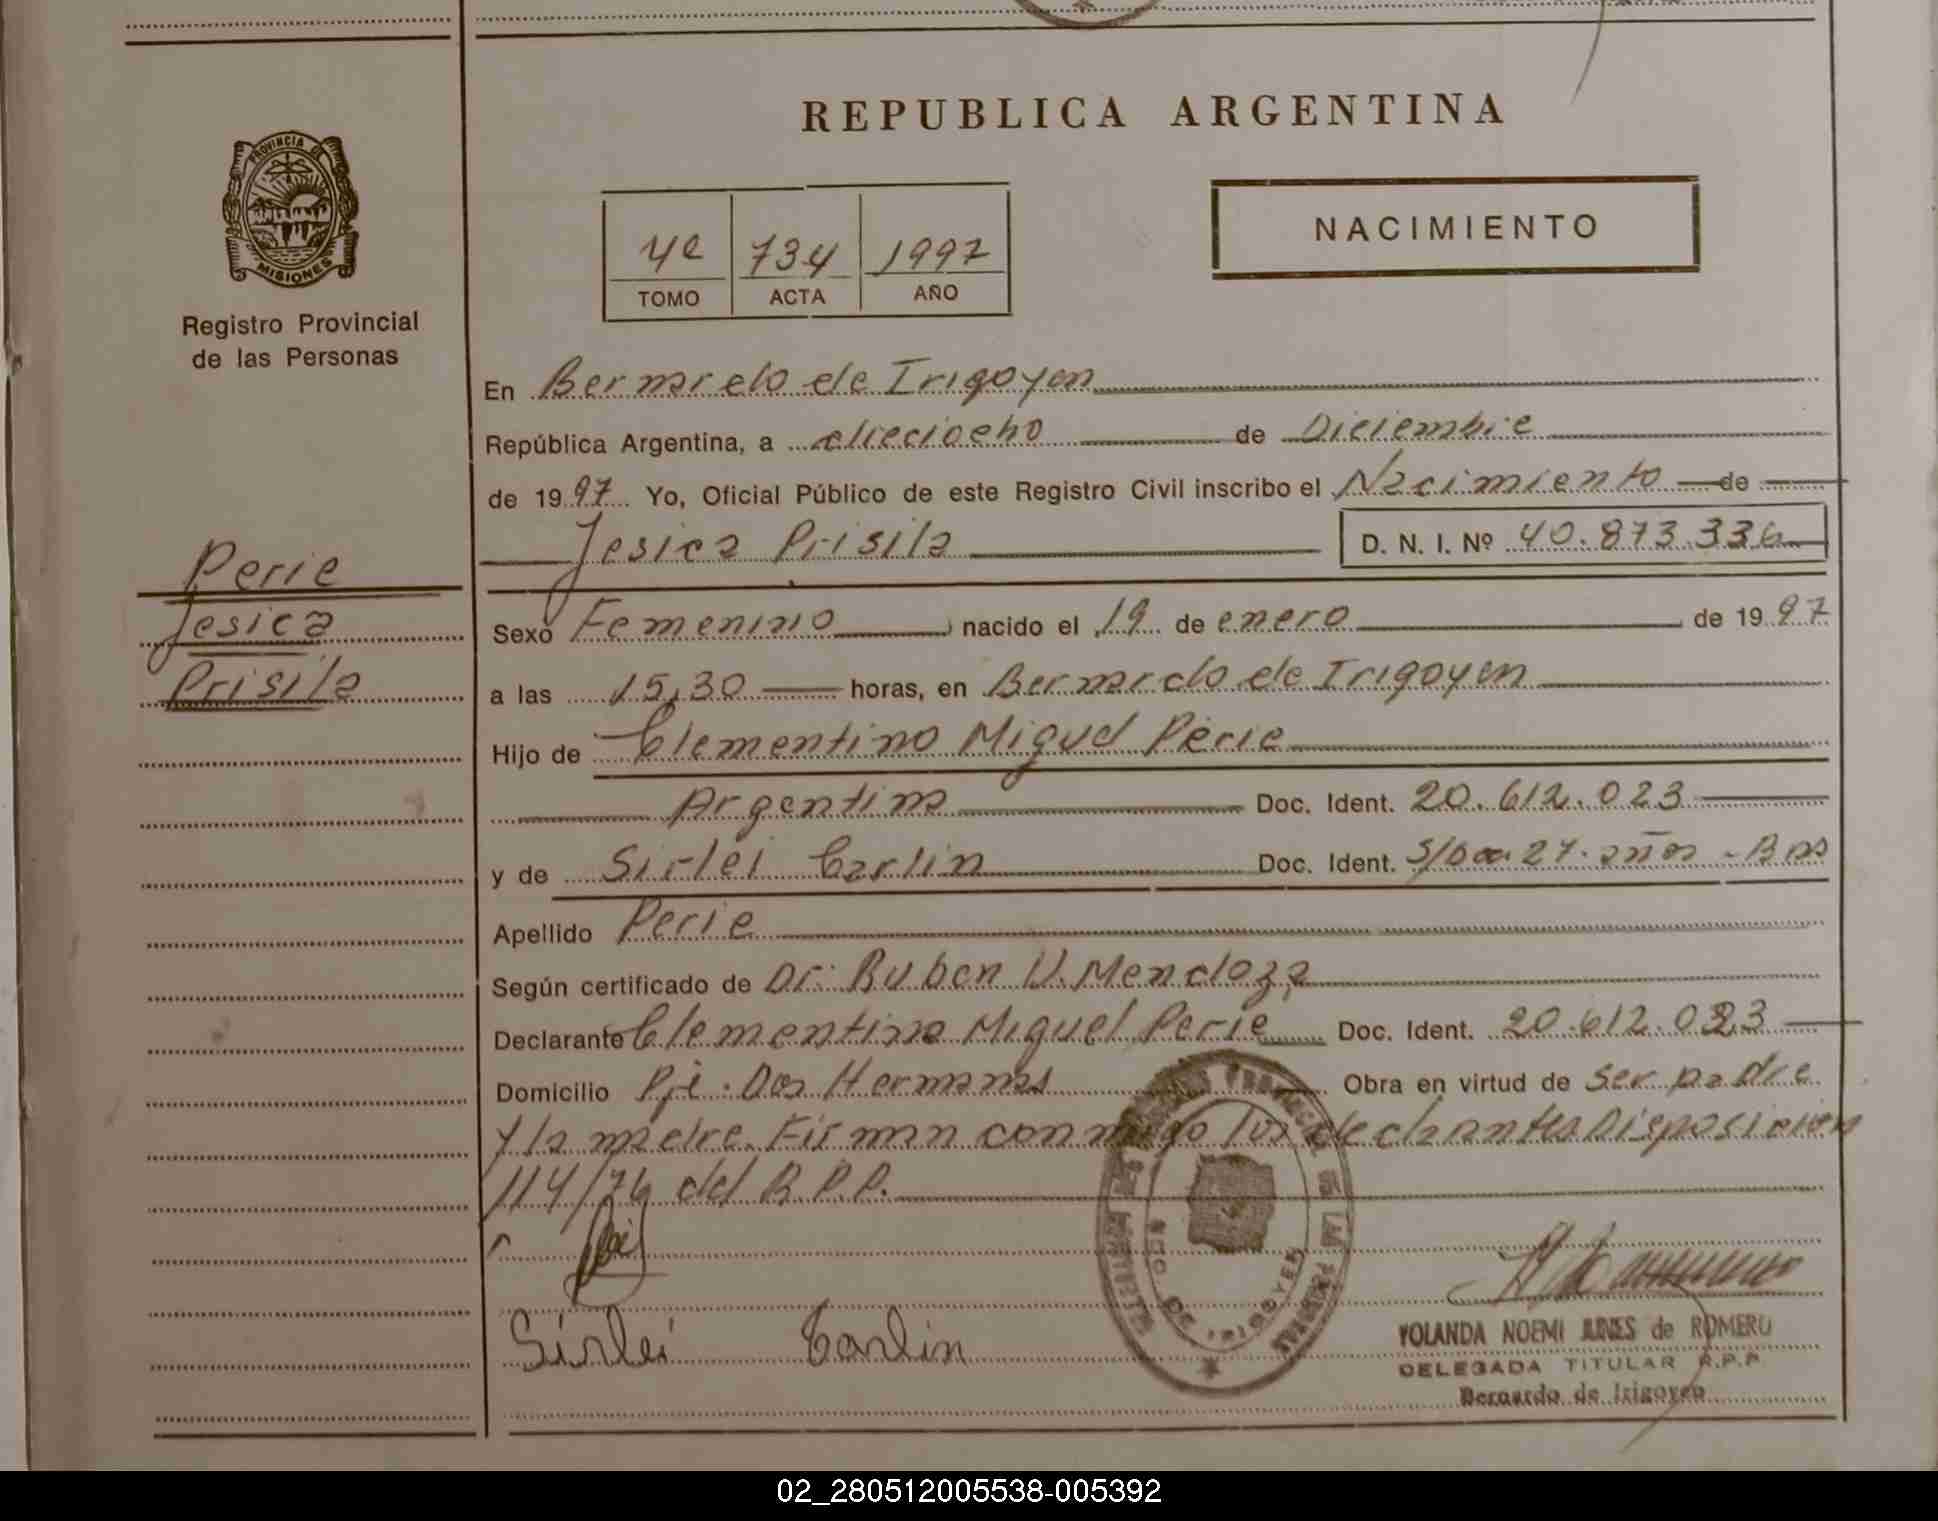 REPUBLICA ARGENTINA
PROVINCIA DE
MISIONES
Registro Provincial
de las Personas
4º 734 1997
TOMO ACTA AÑO
NACIMIENTO
En Bernardo de Irigoyen
República Argentina, a dieciocho de Diciembre
de 1997 Yo, Oficial Público de este Registro Civil inscribo el Nacimiento de
Jesica Prisila D. N. I. Nº 40.873.336
Perie
Jesica
Prisila
Sexo Femenino nacido el 19 de enero de 1997
a las 15,30 horas, en Bernardo de Irigoyen
Hijo de Clementino Miguel Perie
Argentina Doc. Ident. 20.612.023
y de Sirlei Carlin Doc. Ident. S/Doc. 27. años - Bras
Apellido Perie
Según certificado de Dr. Ruben V. Mendoza
Declarante Clementino Miguel Perie Doc. Ident. 20.612.023
Domicilio Pje. Dos Hermanas Obra en virtud de ser padre
y la madre. Firman conmigo los declarantes Disposicion
114/76 del R.P.P.
Sirlei Carlin
BDO DE IRIGOYEN
YOLANDA NOEMI de ROMERO
DELEGADA TITULAR R.P.P.
Bernardo de Irigoyen
02_280512005538-005392